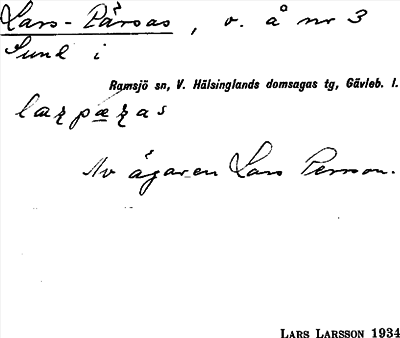 Lars-Pärsas, v. å nr 3
Sund i
Ramsjö sn, V. Hälsinglands domsagas tg, Gävleb. l.
Av ägaren Lars Persson.
LARS LARSSON 1934